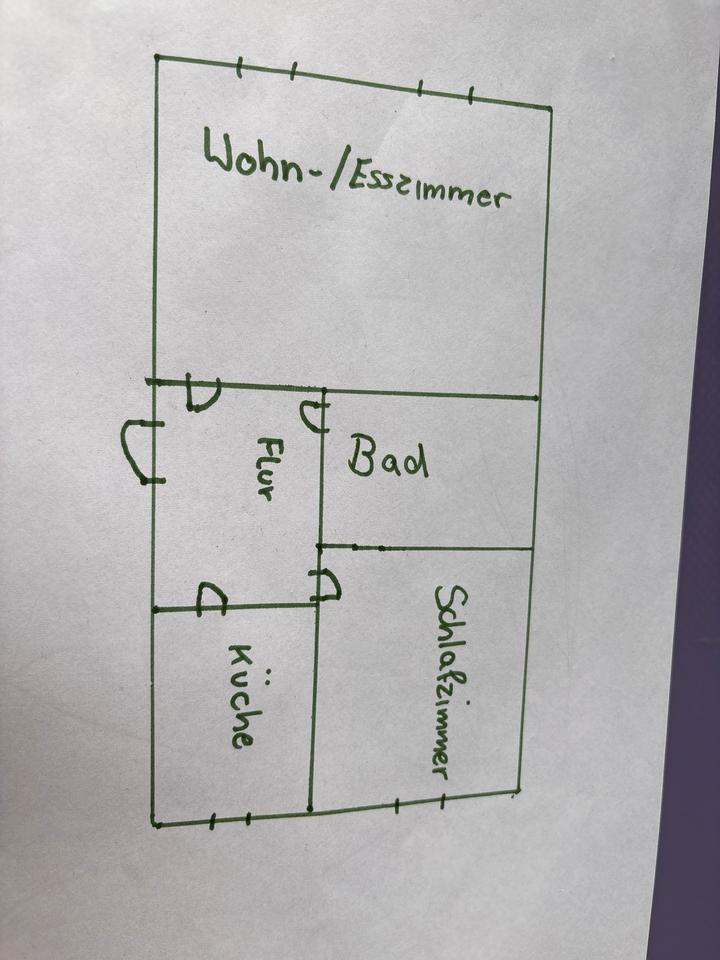 Wohn-/Esszimmer
Flur
Bad
Schlafzimmer
Küche